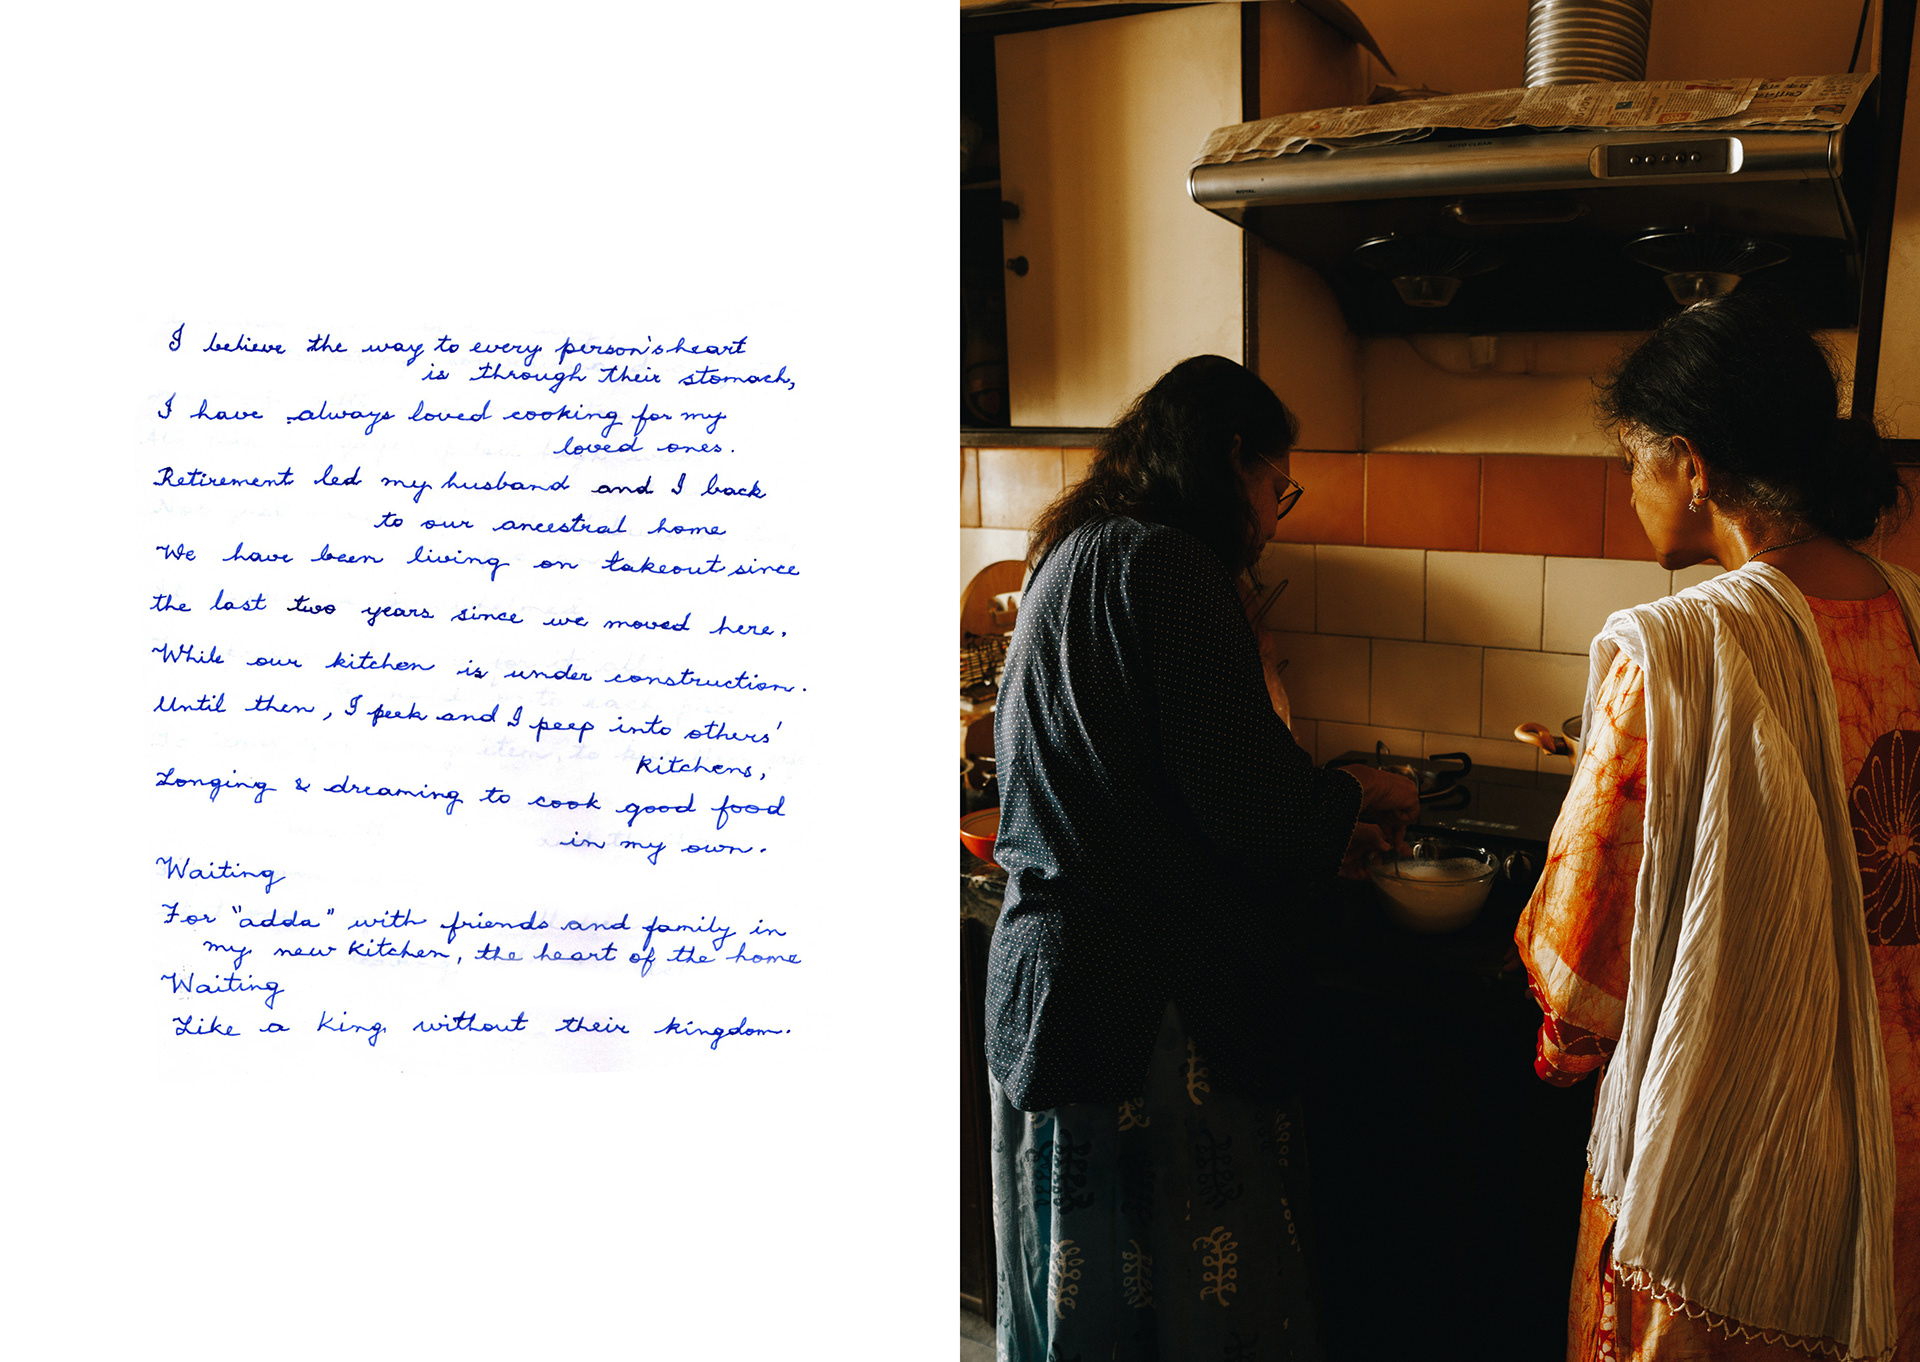 I believe the way to every person's heart
is through their stomach,
I have always loved cooking for my
loved ones.
Retirement led my husband and I back
to our ancestral home
We have been living on takeout since
the last two years since we moved here.
While our kitchen is under construction.
Until then, I peek and I peep into others'
kitchens,
Longing & dreaming to cook good food
in my own.
Waiting
For "adda" with friends and family in
my new kitchen, the heart of the home
Waiting
Like a king without their kingdom.
AUTO CLEAN
ROYAL